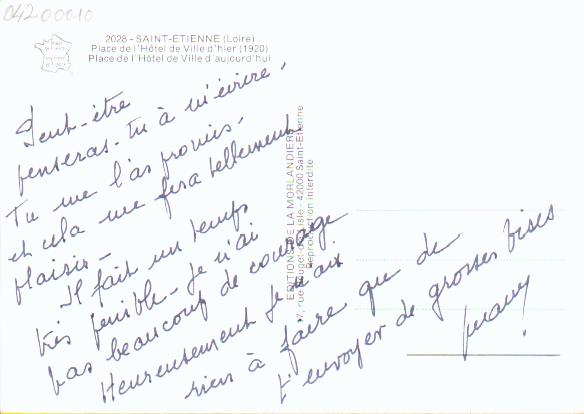 04200010
2028 - SAINT-ETIENNE (Loire)
Place de l'Hôtel de Ville d'hier (1920)
Place de l'Hôtel de Ville d'aujourd'hui
Peut-être
penseras-tu à m'écrire.
Tu me l'as promis.
et cela me fera tellement
plaisir -
Il fait un temps
très pénible - Je n'ai
pas beaucoup de courage
Heureusement je n'ai
rien à faire que de
t'envoyer de grosses bises
EDITIONS DE LA MORLANDIERE
Rouget-de-Lisle - 42000 Saint-Etienne
Reproduction interdite